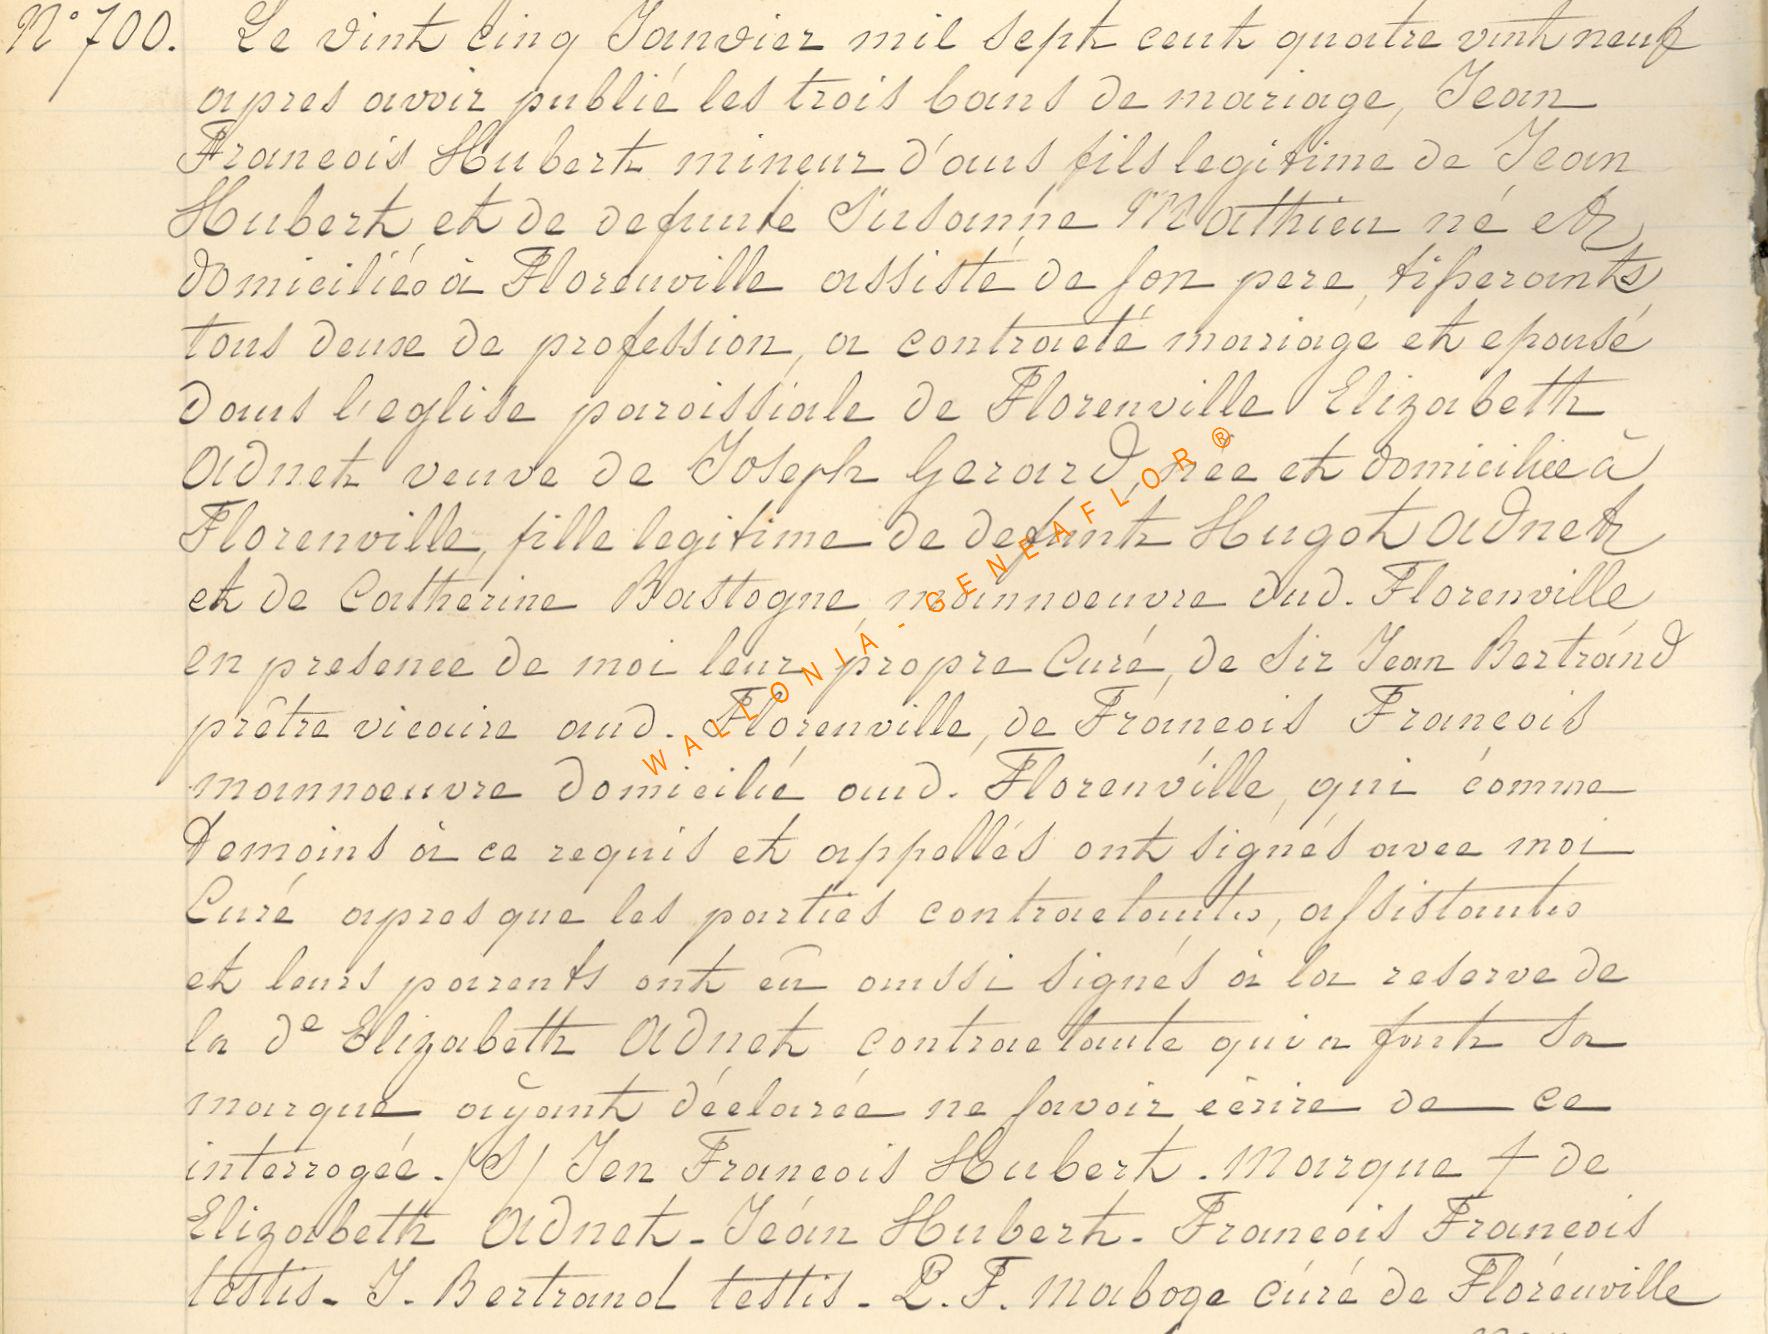 N° 700. Le vint cinq Janvier mil sept cent quatre vint neuf
apres avoir publié les trois bans de mariage, Jean
Francois Hubert mineur d'ans fils legitime de Jean
Hubert et de defunte Susanne Mathieu né et
domiciliés à Florenville assisté de son pere, tisserants,
tous deux de profession, a contracté mariage et epousé
dans l'eglise paroissiale de Florenville Elizabeth
Adnet veuve de Joseph Gerard, née et domiciliée à
Florenville, fille legitime de defunt Hugot Adnet
et de Catherine Bastogne, mannoeuvre dud. Florenville
en presence de moi leur propre Curé, de Sir Jean Bertrand
prêtre vicaire aud. Florenville, de Francois Francois
mannoeuvre domicilié aud. Florenville, qui comme
temoins à ce requis et appellés ont signés avec moi
Curé apres que les parties contractantes, assistantes
et leurs parents ont eû aussi signés à la reserve de
la de Elizabeth Adnet contractante qui a fait sa
marque ayant déclarée ne savoir ecrire de ce
interrogée. /S/ Jen Francois Hubert. Marque + de
Elizabeth Adnet - Jean Hubert - Francois Francois
testis - J. Bertrand testis - P. F. Maboge curé de Florenville
WALLONIA - GENEAFLOR ®